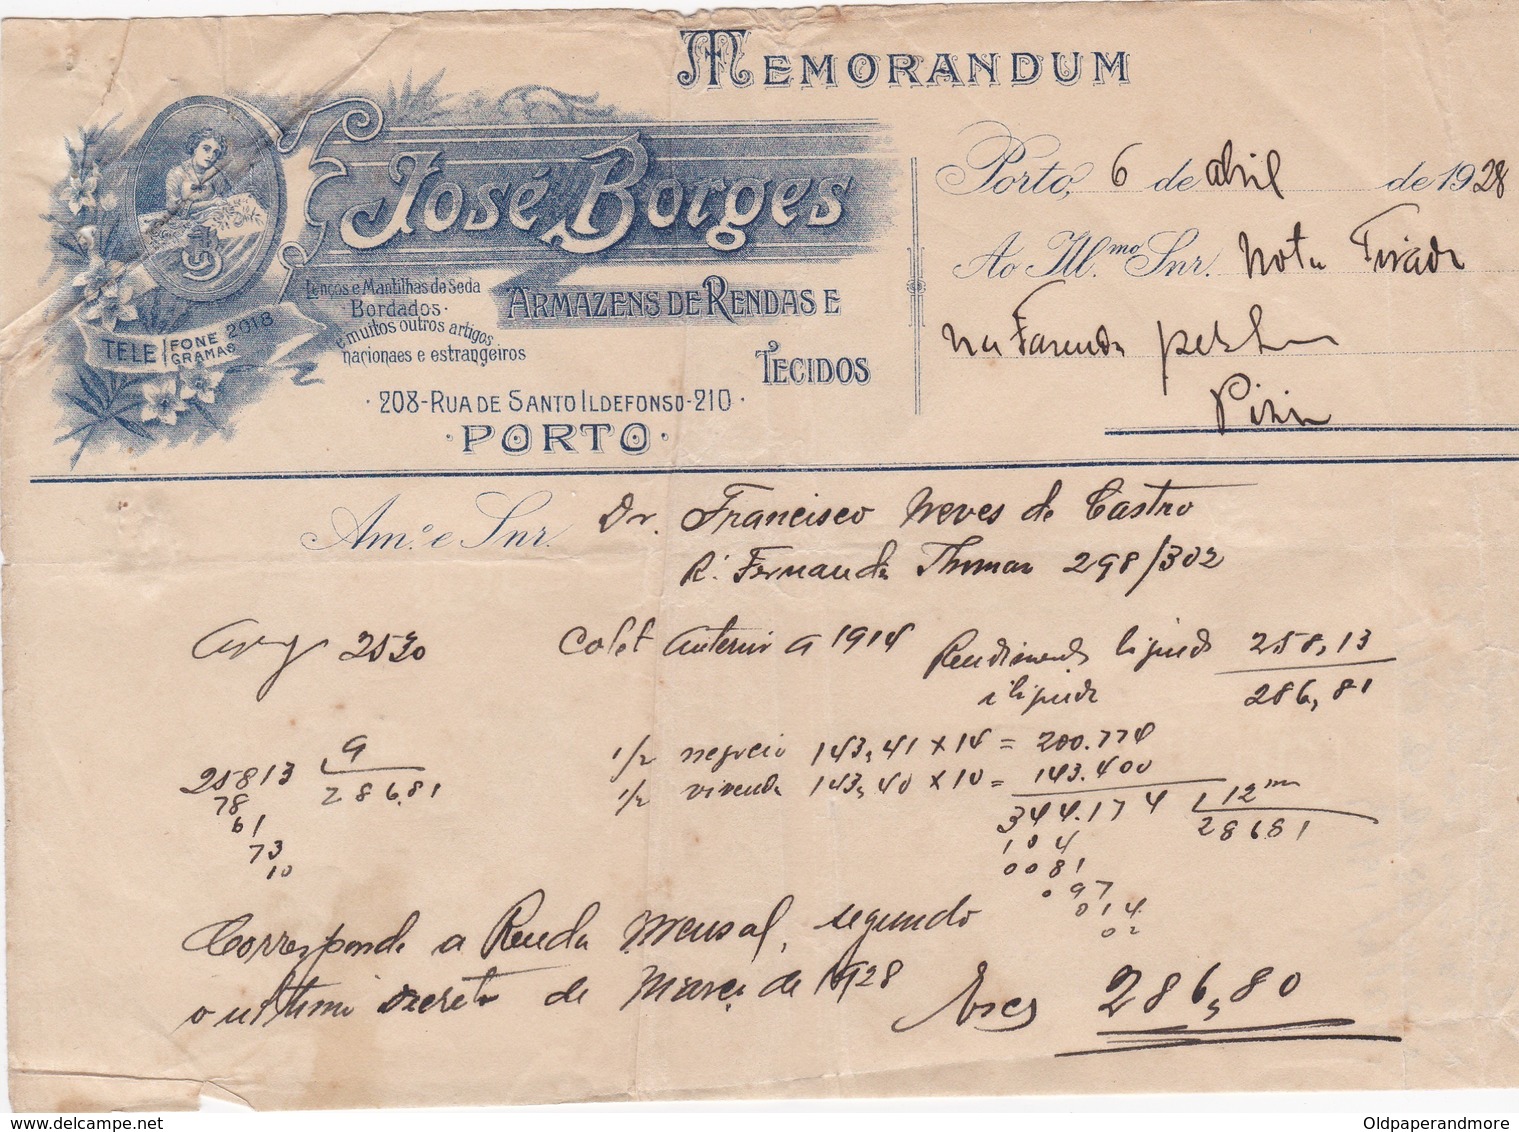 MEMORANDUM
José Borges
Lenços e Mantilhas de Seda
Bordados
e muitos outros artigos
nacionaes e estrangeiros
ARMAZENS DE RENDAS E
TECIDOS
TELE FONE 2018
GRAMAS
· 208-RUA DE SANTO ILDEFONSO-210 ·
· PORTO ·
Porto, 6 de abril de 1928
Ao Ill.mo Snr. Nota Tirada
na Fazenda
Am.o e Snr. Dr. Francisco Neves de Castro
R. Fernando Thomas 298/302
2530
Colet anterior a 1914
Rendimento liquido 258,13
iliquido 286,81
25813 9
78 286.81
61
73
10
1/2 negocio 143,41 x 14 = 200.774
1/2 vivenda 143,40 x 10 = 143.400
344.174 12
104 28681
0081
097
014
02
Corresponde a Renda Mensal, segundo
o ultimo decreto de Março de 1928
Esc 286,80
Oldpaperandmore